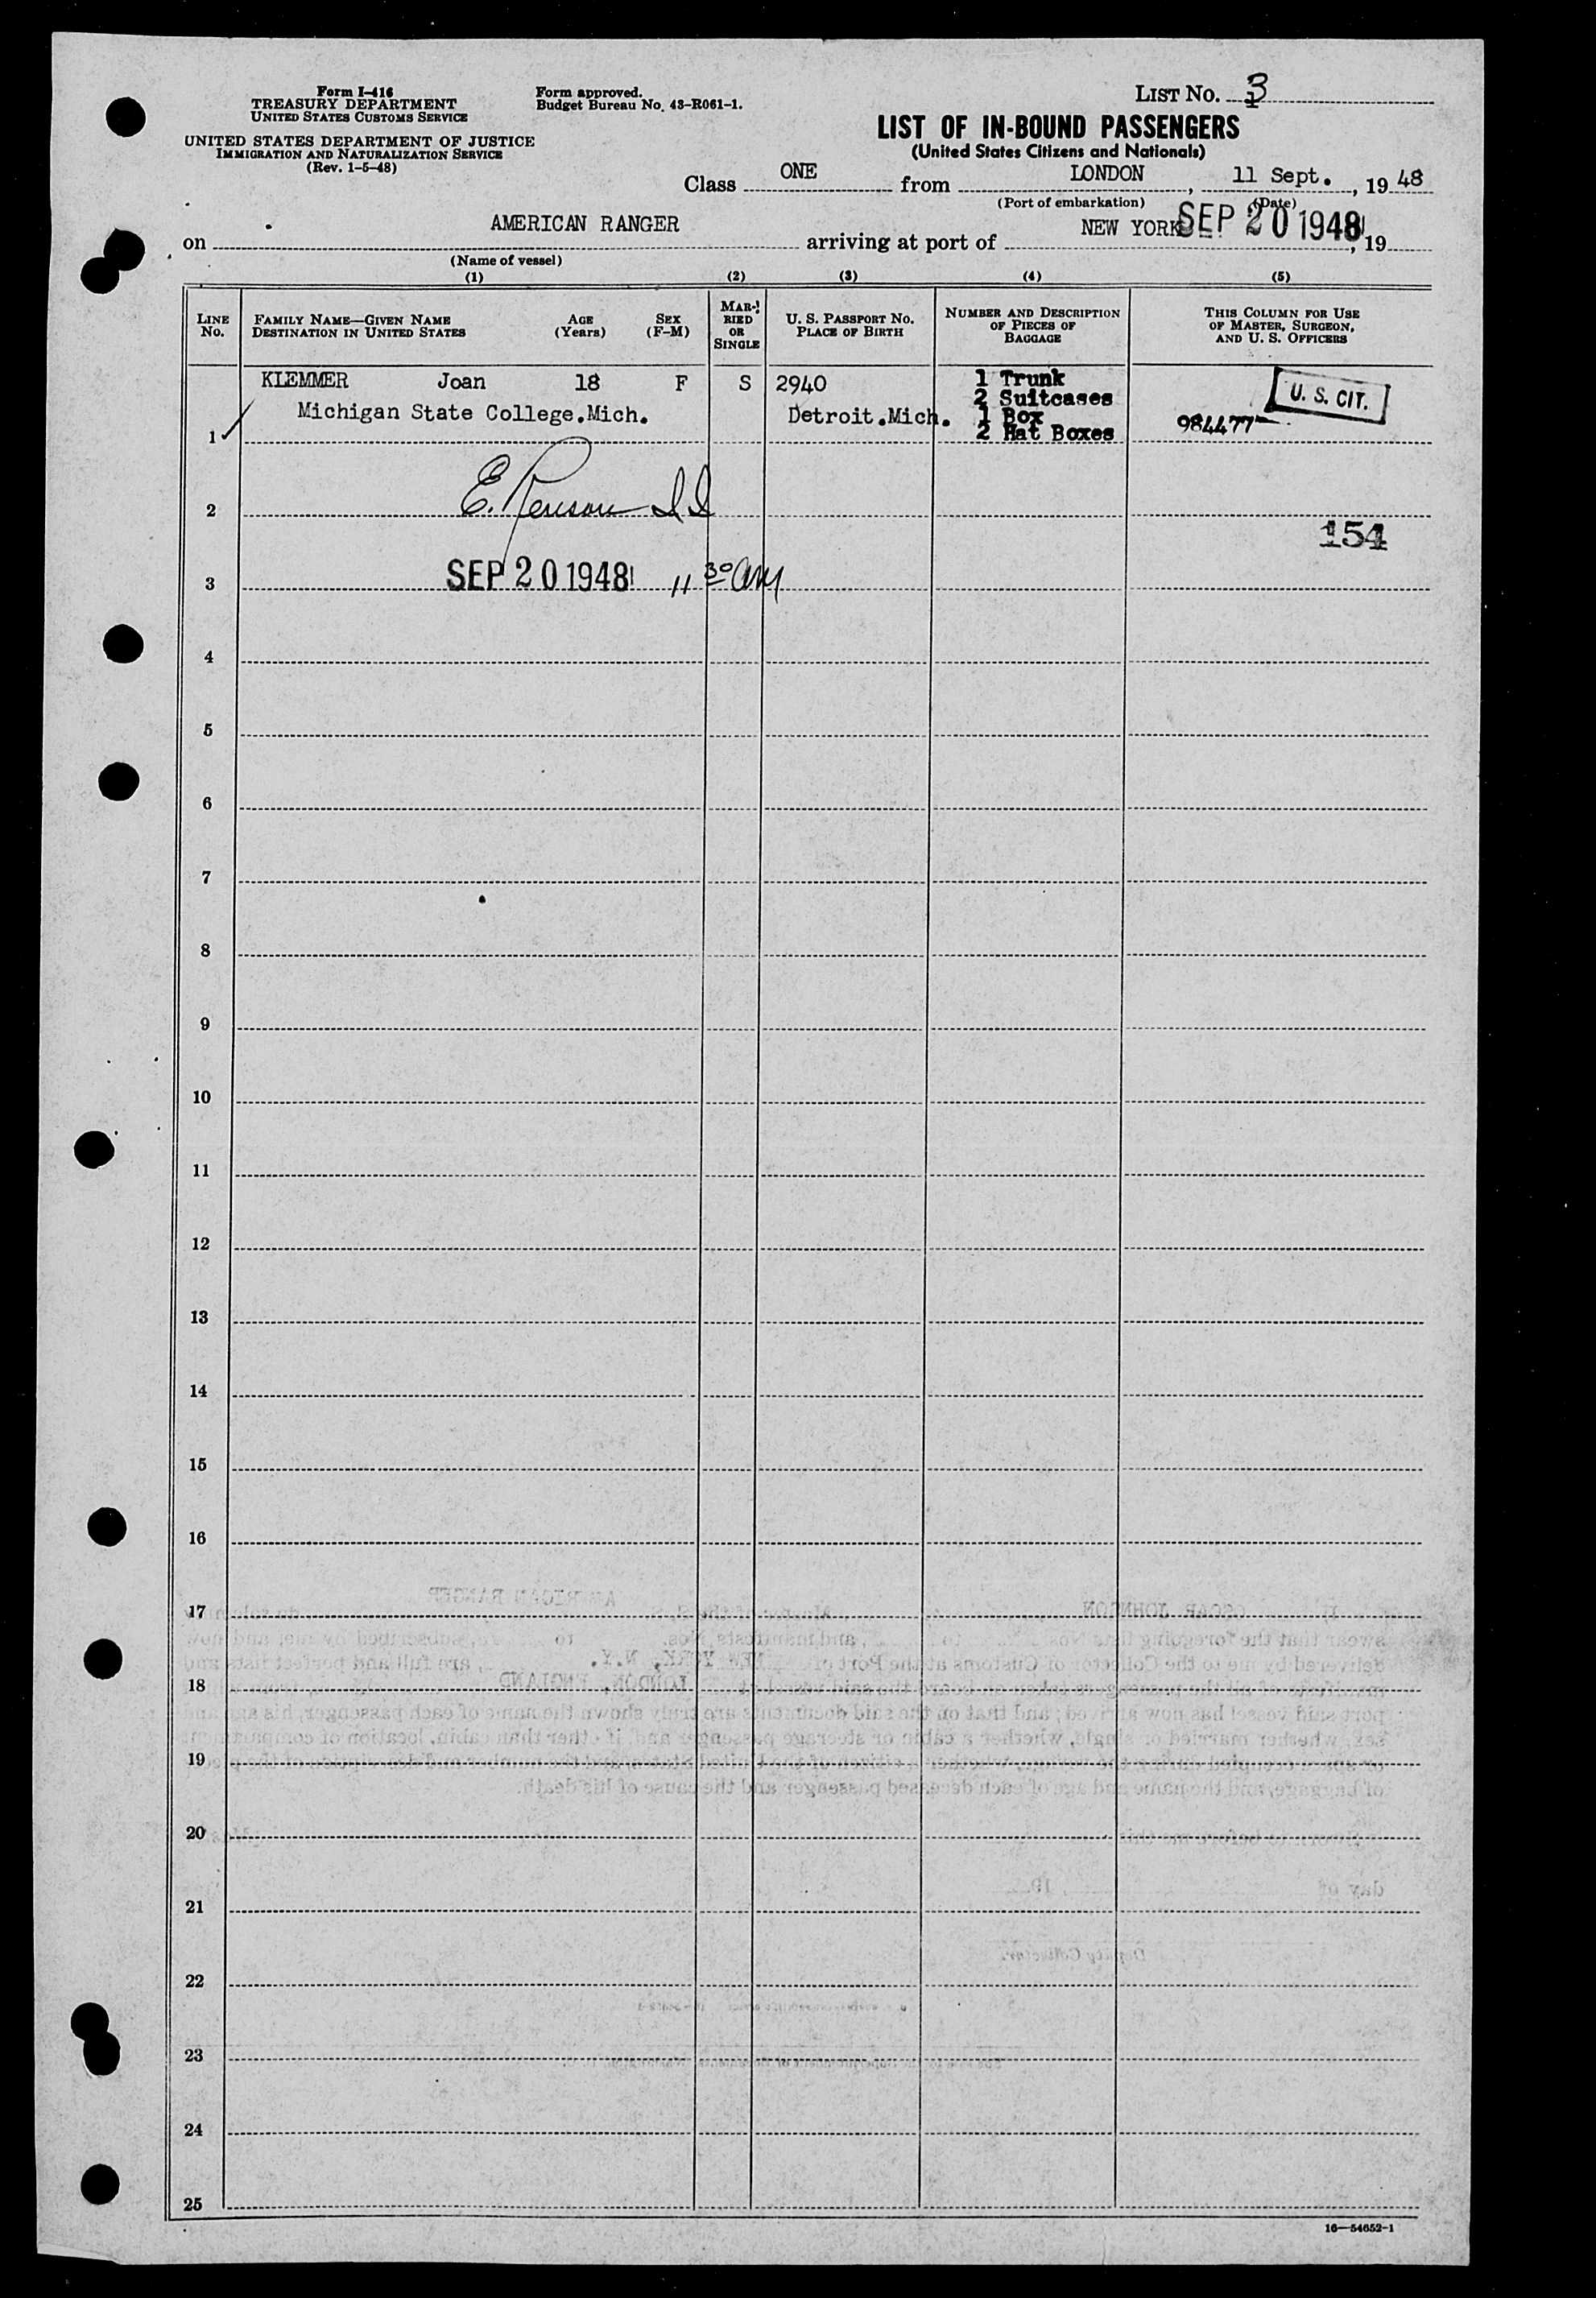 Form I-416
TREASURY DEPARTMENT
UNITED STATES CUSTOMS SERVICE
UNITED STATES DEPARTMENT OF JUSTICE
IMMIGRATION AND NATURALIZATION SERVICE
(Rev. 1-5-48)
Form approved.
Budget Bureau No. 43-R061-1.
LIST No. 3
LIST OF IN-BOUND PASSENGERS
(United States Citizens and Nationals)
Class ONE from LONDON, 11 Sept., 19 48
(Port of embarkation) (Date)
on AMERICAN RANGER arriving at port of NEW YORK SEP 20 1948, 19
(Name of vessel)
(1) (2) (3) (4) (5)
LINE No.
FAMILY NAME—GIVEN NAME
DESTINATION IN UNITED STATES
AGE (Years)
SEX (F-M)
MARRIED OR SINGLE
U. S. PASSPORT NO.
PLACE OF BIRTH
NUMBER AND DESCRIPTION OF PIECES OF BAGGAGE
THIS COLUMN FOR USE OF MASTER, SURGEON, AND U. S. OFFICERS
KLEMMER Joan 18 F S 2940 1 Trunk
2 Suitcases U. S. CIT.
Michigan State College.Mich. Detroit.Mich. 1 Box
1 2 Hat Boxes 984477
2 E.
154
3 SEP 20 1948 11 30 AM
4
5
6
7
8
9
10
11
12
13
14
15
16
AMERICAN RANGER
17 OSCAR JOHNSON
NEW YORK, N.Y.
18 LONDON, ENGLAND
19
of baggage, and the name and age of each deceased passenger and the cause of his death.
20
day of , 19
21
Deputy Collector.
22
23
24
25
16—54652-1